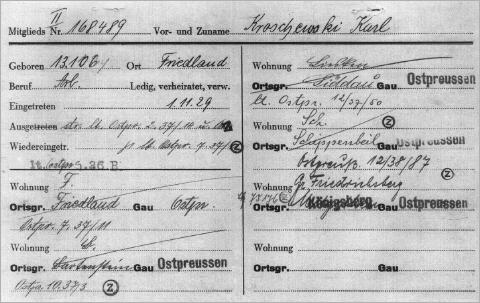 II
Mitglieds Nr. 168489 Vor- und Zuname Kroschewski Karl
Geboren 13.1.06 Ort Friedland
Beruf Arb. Ledig, verheiratet, verw.
Eingetreten 1.11.29
Ausgetreten str. lt. Ostpr. 2.37/10
Wiedereingetr. lt. Ostpr. 7.37/
Lt. Ostpr. S. 26. B
Wohnung F.
Ortsgr. Friedland Gau Ostpr.
Ostpr. 7.37/11
Wohnung B.
Ortsgr. Bartenstein Gau Ostpreussen
Ostpr. 10.37/3 Z
Wohnung
Ortsgr. Gau Ostpreussen
lt. Ostpr. 12/37/50
Wohnung Sch. Z
Ortsgr. Schippenbeil Gau Ostpreussen
Ostpreuß. 12/38/87
Wohnung Gr. Friedrichsberg Z
Ortsgr. Königsberg Gau Ostpreussen
Wohnung
Ortsgr. Gau